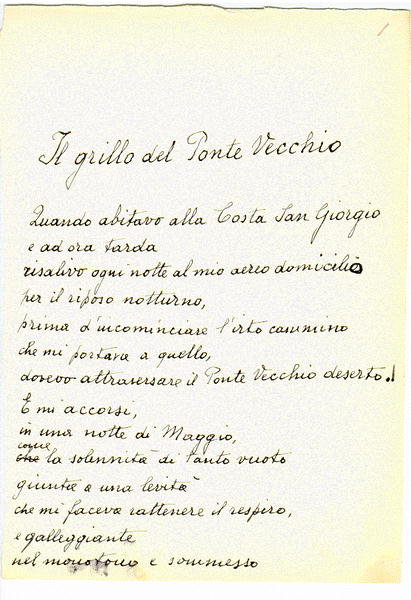 1
Il grillo del Ponte Vecchio
Quando abitavo alla Costa San Giorgio
e ad ora tarda
risalivo ogni notte al mio aereo domicilio
per il riposo notturno,
prima d'incominciare l'irto cammino
che mi portava a quello,
dovevo attraversare il Ponte Vecchio deserto.
E mi accorsi,
in una notte di Maggio,
come
che la solennità di tanto vuoto
giunta a una levità
che mi faceva rattenere il respiro,
e galleggiante
nel monotono e sommesso